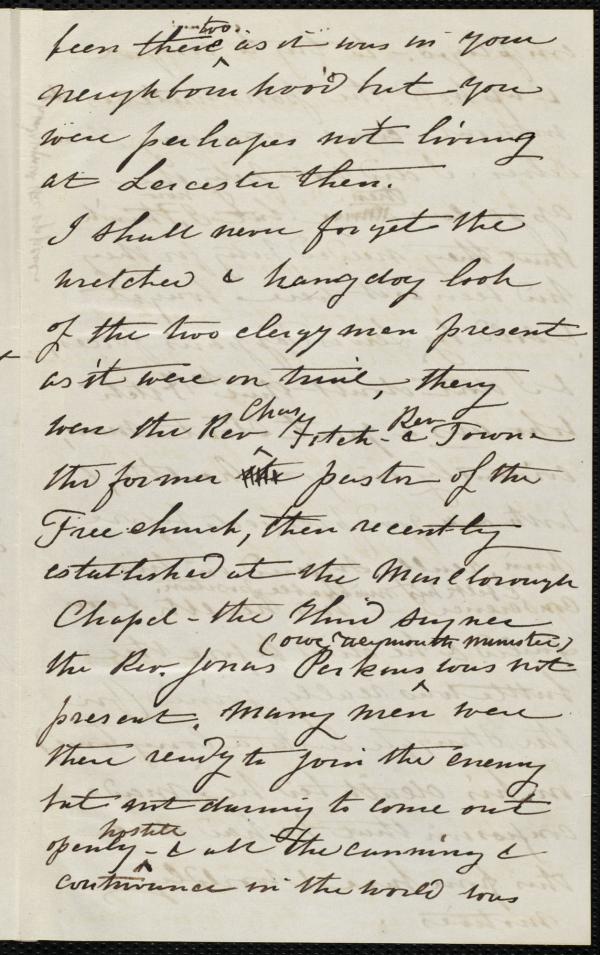 too
been there as it was in your
neighbourhood but you
were perhapes not living
at Leicester then.
I shall never forget the
wretched & hangdog look
of the two clergymen present
as it were on trial, they
Chas
were the Rev Fitch - & Rev Towne
the former pastor of the
Free church, then recently
established at the Marlborough
Chapel - the third signer
(our Weymouth minister)
the Rev. Jonas Perkins was not
present. Many men were
there ready to join the enemy
but not daring to come out
hostile
openly - & all the cunning &
contrivance in the world was